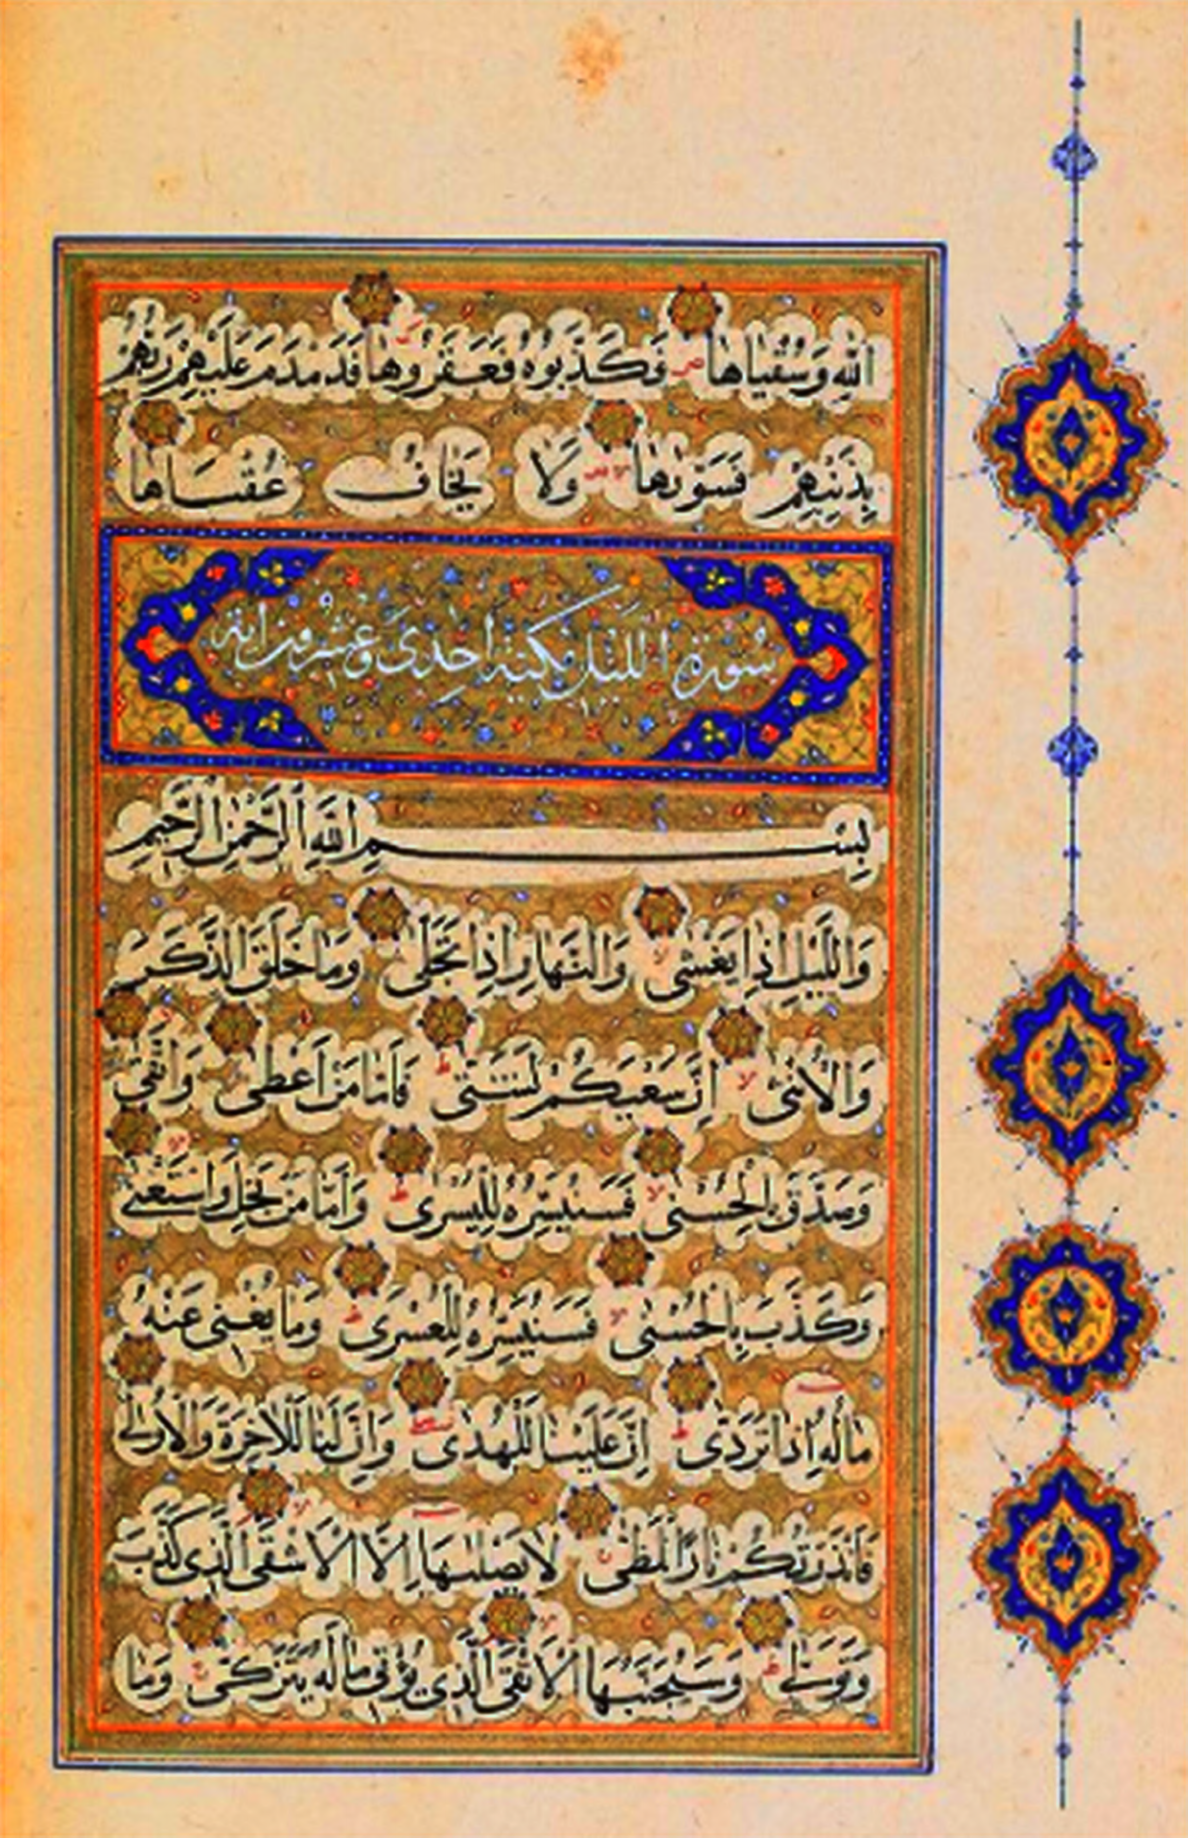 اللَّهِ وَسُقْيَاهَا فَكَذَّبُوهُ فَعَقَرُوهَا فَدَمْدَمَ عَلَيْهِمْ رَبُّهُمْ
بِذَنْبِهِمْ فَسَوّٰىهَا وَلَا يَخَافُ عُقْبَاهَا
سُورَةُ اللَّيْلِ مَكِّيَّة اِحْدَى وَعِشْرُونَ آيَة
بِسْمِ اللَّهِ الرَّحْمٰنِ الرَّحِيمِ
وَاللَّيْلِ اِذَا يَغْشٰى وَالنَّهَارِ اِذَا تَجَلّٰى وَمَا خَلَقَ الذَّكَرَ
وَالْاُنْثٰى اِنَّ سَعْيَكُمْ لَشَتّٰى فَاَمَّا مَنْ اَعْطٰى وَاتَّقٰى
وَصَدَّقَ بِالْحُسْنٰى فَسَنُيَسِّرُهُ لِلْيُسْرٰى وَاَمَّا مَنْ بَخِلَ وَاسْتَغْنٰى
وَكَذَّبَ بِالْحُسْنٰى فَسَنُيَسِّرُهُ لِلْعُسْرٰى وَمَا يُغْنِى عَنْهُ
مَالُهُ اِذَا تَرَدّٰى اِنَّ عَلَيْنَا لَلْهُدٰى وَاِنَّ لَنَا لَلْاٰخِرَةَ وَالْاُولٰى
فَاَنْذَرْتُكُمْ نَارًا تَلَظّٰى لَا يَصْلٰىهَا اِلَّا الْاَشْقَى الَّذِى كَذَّبَ
وَتَوَلّٰى وَسَيُجَنَّبُهَا الْاَتْقَى الَّذِى يُؤْتِى مَالَهُ يَتَزَكّٰى وَمَا